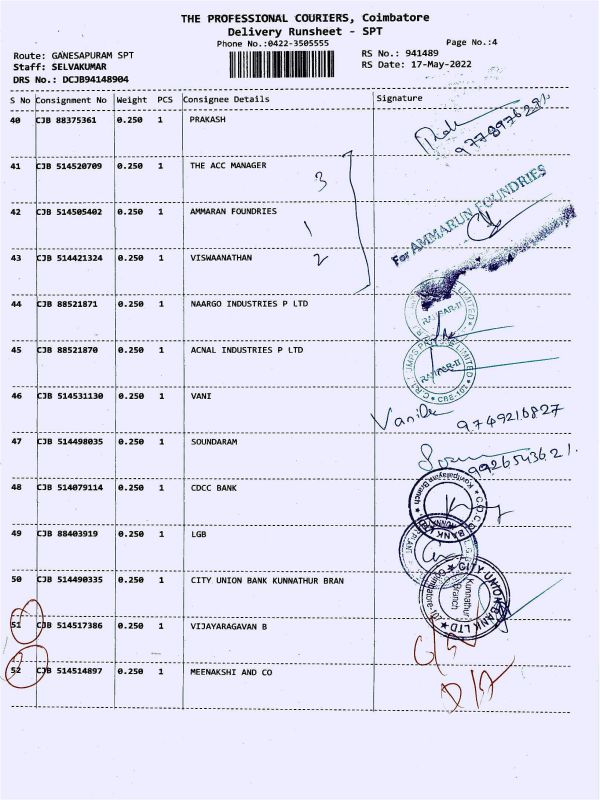 THE PROFESSIONAL COURIERS, Coimbatore
Delivery Runsheet - SPT
Phone No.:0422-3505555
Page No.:4
Route: GANESAPURAM SPT
RS No.: 941489
Staff: SELVAKUMAR
RS Date: 17-May-2022
DRS No.: DCJB94148904
S No Consignment No Weight PCS Consignee Details Signature
40 CJB 88375361 0.250 1 PRAKASH
41 CJB 514520709 0.250 1 THE ACC MANAGER
3
42 CJB 514505402 0.250 1 AMMARAN FOUNDRIES
For AMMARUN FOUNDRIES
1
43 CJB 514421324 0.250 1 VISWAANATHAN
2
44 CJB 88521871 0.250 1 NAARGO INDUSTRIES P LTD
45 CJB 88521870 0.250 1 ACNAL INDUSTRIES P LTD
46 CJB 514531130 0.250 1 VANI
9749216827
47 CJB 514498035 0.250 1 SOUNDARAM
9926543621.
48 CJB 514079114 0.250 1 CDCC BANK
49 CJB 88403919 0.250 1 LGB
50 CJB 514490335 0.250 1 CITY UNION BANK KUNNATHUR BRAN
CITY UNION BANK LTD
Kunnathur
Branch
51 CJB 514517386 0.250 1 VIJAYARAGAVAN B
52 CJB 514514897 0.250 1 MEENAKSHI AND CO